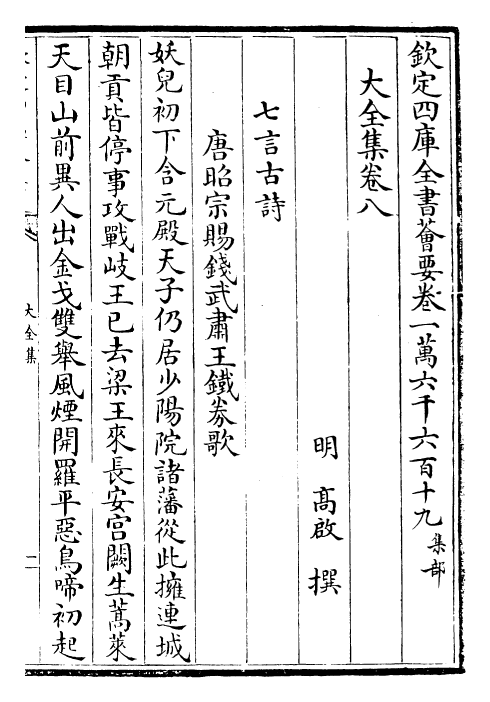 欽定四庫全書薈要卷一萬六千六百十九集部
大全集卷八
明 高啟 撰
七言古詩
唐昭宗賜錢武肅王鐵券歌
妖兒初下含元殿天子仍居少陽院諸藩從此擁連城
朝貢皆停事攻戰岐王已去梁王來長安宫闕生蒿萊
天目山前異人出金戈雙舉風煙開羅平惡鳥啼初起
大全集